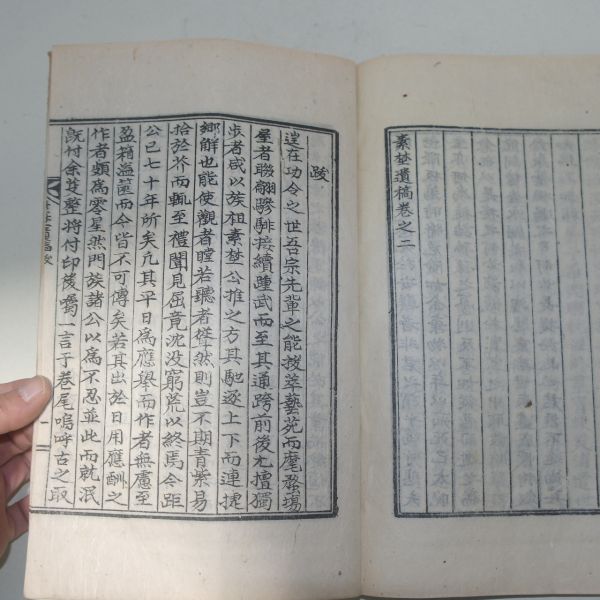 素埜遺稿卷之二
跋
逞在功令之世吾宗先輩之能拔萃藝苑而麾務場
屋者聯翩驂騑接續踵武而至其通跨前後尤擅獨
步者咸以族祖素埜公推之方其馳逐上下而連捷
鄉解也能使觀者瞠若聽者聳然則豈不期青紫易
拾於芥而輒至禮闈見屈竟沈沒窮荒以終焉今距
公已七十年所矣凢其平日爲應擧而作者無慮至
盈箱溢篋而今皆不可傳矣若其出於日用應酬之
作者類爲零星然門族諸公以爲不忍並此而就泯
旣付余使整將付印後囑一言于卷尾嗚呼古之取